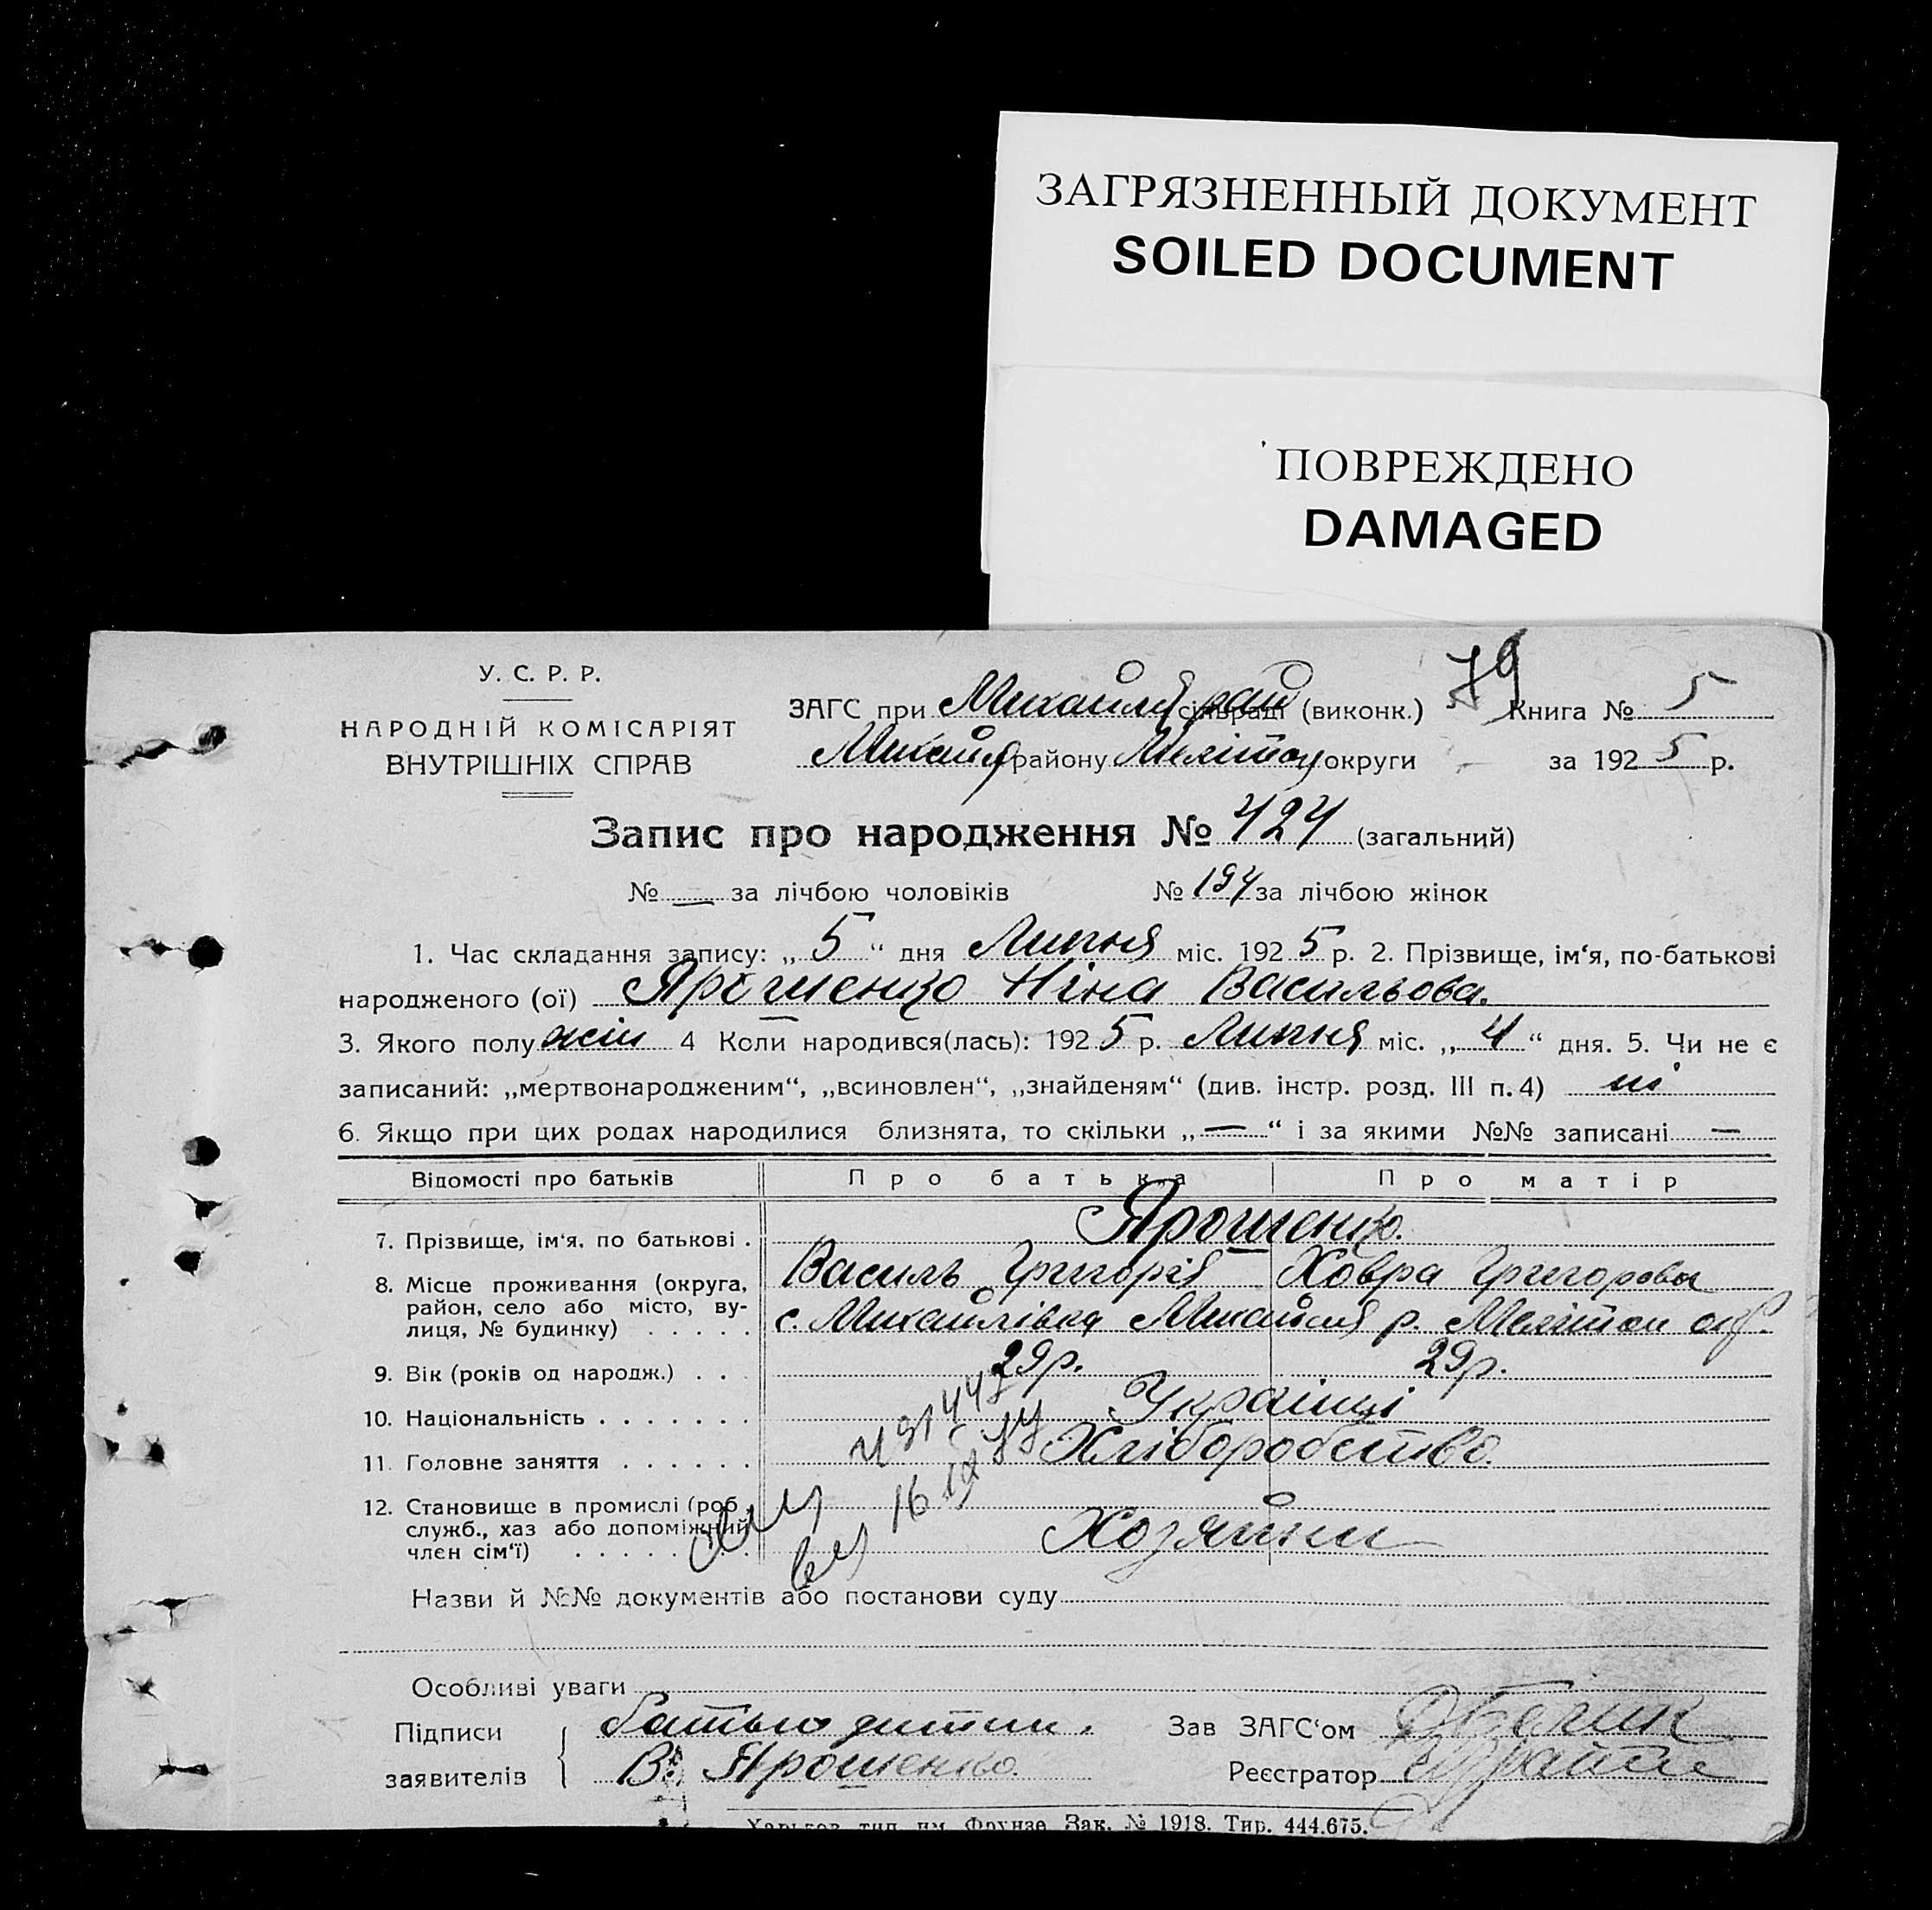 ЗАГРЯЗНЕННЫЙ ДОКУМЕНТ
SOILED DOCUMENT
ПОВРЕЖДЕНО
DAMAGED
79
У. С. Р. Р.
НАРОДНІЙ КОМІСАРІЯТ
ВНУТРІШНІХ СПРАВ
ЗАГС при Михайлів рай сільраді (виконк.) Книга № 5
Михайл району Мелітоп округи за 1925 р.
Запис про народження № 424 (загальний)
№ — за лічбою чоловіків № 194 за лічбою жінок
1. Час складання запису: „5“ дня Липня міс. 1925 р. 2. Прізвище, ім‘я, по-батькові
народженого (ої) Ярошенко Ніна Васильова.
3. Якого полу жін 4 Коли народився(лась): 1925 р. Липня міс. „4“ дня. 5. Чи не є
записаний: „мертвонародженим“, „всиновлен“, „знайденям“ (див. інстр. розд. III п. 4) ні
6. Якщо при цих родах народилися близнята, то скільки „—“ і за якими №№ записані —
Відомості про батьків Про батька Про матір
Ярошенко.
7. Прізвище, ім‘я, по батькові .
Василь Григорів Ховра Григорова
8. Місце проживання (округа,
район, село або місто, ву-
лиця, № будинку) . . . . .
с. Михайлівка Михайлів р. Мелітоп окр.
9. Вік (років од народж.) . . . 29р. 29р.
10. Національність . . . . . . . Українці
11. Головне заняття . . . . . . Хліборобство.
12. Становище в промислі (роб.,
служб., хаз або допоміжний
член сім‘ї) . . . . . . . . Хозяйни
Назви й №№ документів або постанови суду
Особливі уваги
Підписи батько дитини. Зав ЗАГС‘ом
заявителів В. Ярошенко. Реєстратор
Харьков тип им Фрунзе Зак. № 1918. Тир. 444.675.